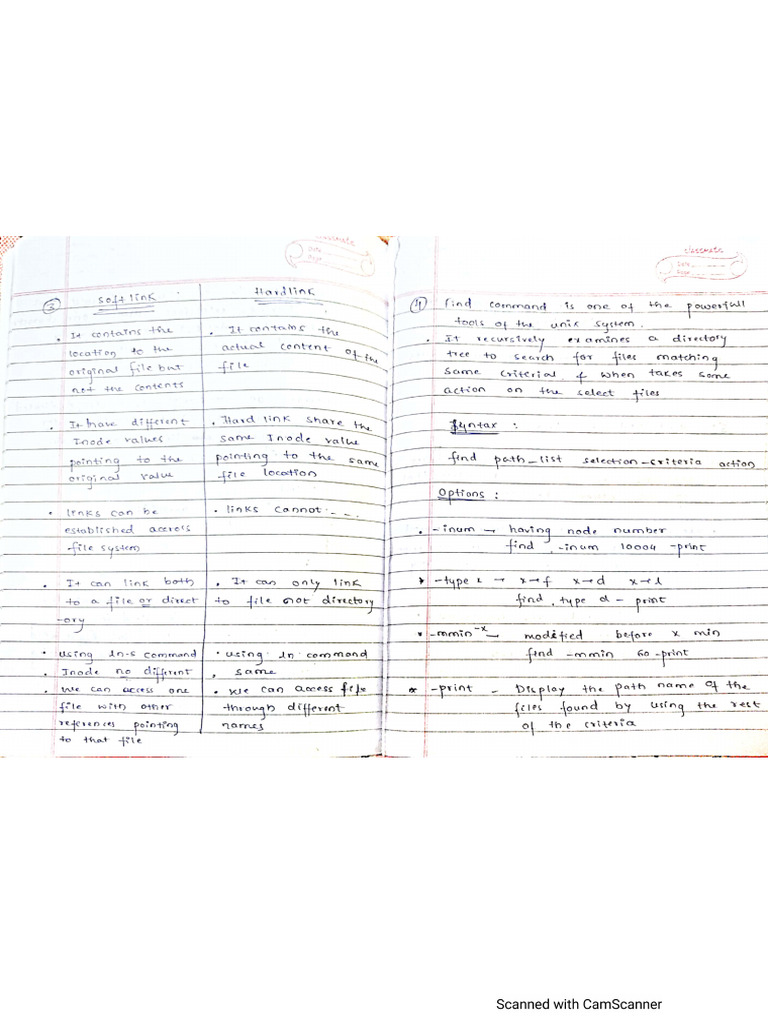 classmate
Date
Page
③
Soft link
Hardlink
. It contains the
location to the
original file but
not the contents
. It contains the
actual content of the
file
. It have different
Inode values
pointing to the
original value
. Hard link share the
same Inode value
pointing to the same
file location
. links can be
established accross
file system
. links cannot ----
. It can link both
to a file or direct
-ory
. It can only link
to file not directory
. using ln-s command
. using ln command
. Inode no different
. same
. we can access one
file with other
references pointing
to that file
. we can access file
through different
names
classmate
Date
Page
④ find command is one of the powerfull
tools of the unix system.
. It recursively examines a directory
tree to search for files matching
same criterial & when takes some
action on the select files
Syntax :
find path_list selection-criteria action
Options :
. -inum → having node number
find . -inum 10004 -print
* -type x → x→f x→d x→l
find . type d - print
* -mmin -x – modified before x min
find -mmin 60 -print
* -print – Display the path name of the
files found by using the rest
of the criteria
Scanned with CamScanner